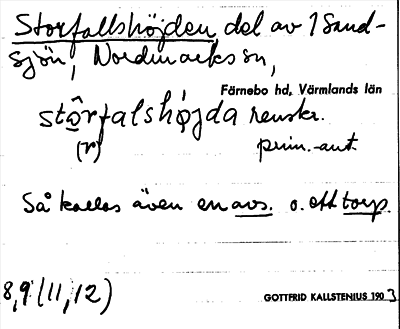 Storfallshöjden, del av 1 Sand-
sjön, Nordmarks sn,
Färnebo hd, Värmlands län
stôrfalshøjda renskr.
(r) prim.-ant.
Så kallas även en avs. o. ett torp.
8,9 (11,12)
GOTTFRID KALLSTENIUS 1903